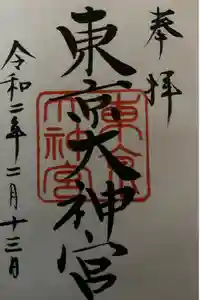 奉拝
東京大神宮
東京
大神宮
令和二年二月十三日